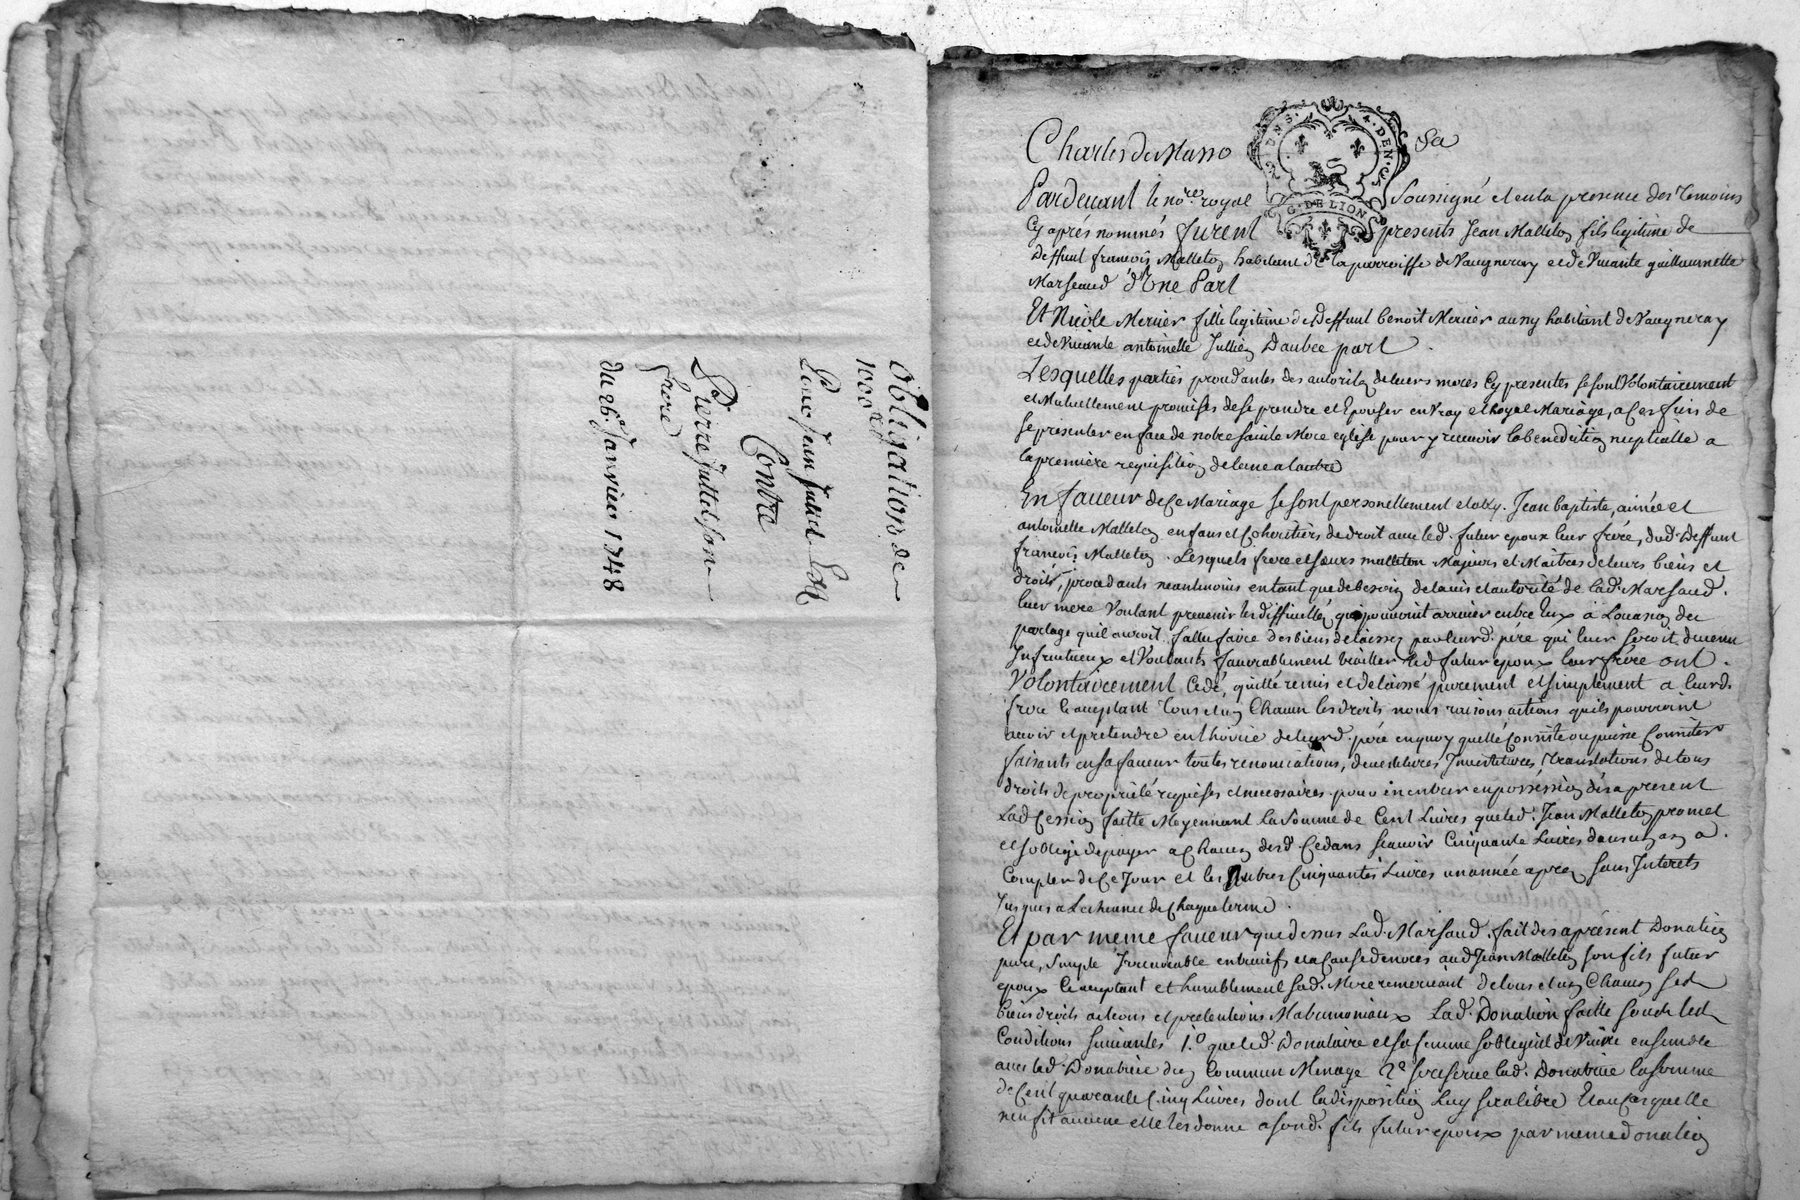 Obligation de
1000 ₶
Pour Jean Juttet
Contre
Pierre Juttet son
frere
du 26e Janvier 1748
Charles de Masso
Sa
2 DNS. 4. DEN. CS
G. DE LION
Pardevant le nore royal Soussigné et en la presence des temoins
Cy aprés nommés furent presents Jean Malleton fils legitime de
deffunt francois Malleton habitant de la parroisse de Vaugneray et de Vivante guillaumette
Marsaud d'Une Part
Et Nicole Mercier fille legitime de deffunt benoit Mercier aussy habitant de Vaugneray
et de Vivante antoinette Jullien Dautre part
Lesquelles parties procedantes des autorités de leurs meres Cy presentes se sont Volontairement
et Mutuellement promises de se prendre et Epouser en Vray et Loyal Mariage, a Ces fins de
se presenter en face de notre sainte Mere eglise pour y recevoir la benediction nuptialle a
la premiere requisition de lune a lautre
En faveur de Ce Mariage se sont personnellement etablys Jean baptiste, aimée et
antoinette Malleton enfans et Coheritiers de droit avec led. futur epoux leur frére, dud. Deffunt
francois Malleton. Lesquels frere et sœurs malleton Majeurs et Maitres de leurs biens et
droits, procedants neantmoins en tant que de besoin de lavis et autorité de lad. Marsaud.
leur mere Voulant prevenir les difficultés qui pouroient arriver entre Eux à Loccasion du
partage quil auroit fallu faire des biens delaissez par leurd. pére qui leur seroit devenu
Infructueux et Voulants favorablement traitter led. futur epoux leur frére ont.
Volontairement Cedé, quitté remis et delaissé purement et simplement a leurd.
frere Ce acceptant tous et un Chacun les droits noms raisons actions quils pourroient
avoir et pretendre en lhoirie de leurd. pére en quoy quelle Consiste ou puisse Consister
faisants en sa faveur toutes renonciations, devestitures, Investitures, translations de tous
droits de propriété requises et necessaires pour en entrer en possession dés a present
Lad Cession faitte Moyennant la Somme de Cent Livres que led. Jean Malleton promet
et soblige de payer a Chacun desd. Cedans scavoir Cinquante Livres dans un an a.
Compter de Ce Jour et les autres Cinquantes Livres une année aprez sans Interets
Jusques a Lecheance de Chaque terme.
Et par meme faveur que dessus Lad. Marsaud. fait des aprésent Donation
pure, Simple Irrevocable entrevifs et a Cause de noces aud. Jean Malleton son fils futur
epoux Ce acceptant et humblement sad. Mere remerciant de tous et un Chacun ses
biens droits actions et pretentions Matrimoniaux Lad. Donation faitte sous les
Conditions suivantes 1.o que led. Donataire et sa femme sobligent de Vivre ensemble
avec lad. Donatrice dun Commun Menage 2e se reserve lad. Donatrice la somme
de Cent quarante Cinq Livres dont la disposition Luy sera libre Et au Cas quelle
nen fit aucune elle les donne a sond. fils futur epoux par meme donation